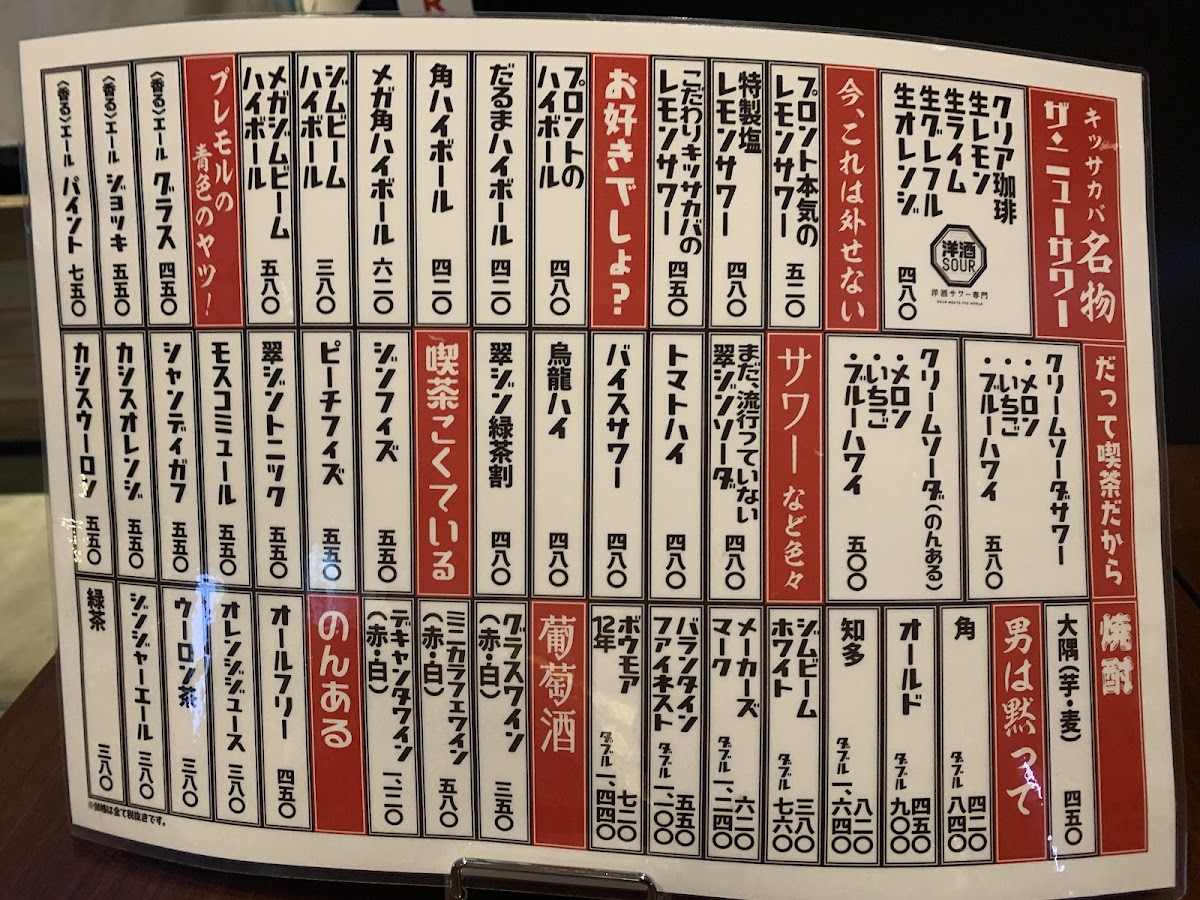 キッサカバ名物
ザ・ニューサワー
クリア珈琲
生レモン
生ライム
生グレフル
生オレンジ
四八〇
洋酒
SOUR
洋酒サワー専門
今、これは外せない
プロント本気の
レモンサワー
五二〇
特製塩
レモンサワー
四八〇
こだわりキッサカバの
レモンサワー
四五〇
お好きでしょ?
プロントの
ハイボール
四八〇
だるまハイボール
四二〇
角ハイボール
四二〇
メガ角ハイボール
六二〇
ジムビーム
ハイボール
三八〇
メガジムビーム
ハイボール
五八〇
プレモルの
青色のヤツ!
〈香る〉エール グラス 四五〇
〈香る〉エール ジョッキ 五五〇
〈香る〉エール パイント 七五〇
だって喫茶だから
クリームソーダサワー
・メロン
・いちご
・ブルーハワイ
五八〇
クリームソーダ(のんある)
・メロン
・いちご
・ブルーハワイ
五〇〇
サワーなど色々
まだ、流行っていない
翠ジンソーダ
四八〇
トマトハイ
四八〇
バイスサワー
四八〇
烏龍ハイ
四八〇
翠ジン緑茶割
四八〇
喫茶こくている
ジンフィズ
五五〇
ピーチフィズ
五五〇
翠ジントニック
五五〇
モスコミュール
五五〇
シャンディガフ
五五〇
カシスオレンジ
五五〇
カシスウーロン
五五〇
焼酎
大隅(芋・麦)
四五〇
男は黙って
角
四二〇
ダブル 八四〇
オールド
四五〇
ダブル 九〇〇
知多
八二〇
ダブル 一、六四〇
ジムビーム
ホワイト
三八〇
ダブル 七六〇
メーカーズ
マーク
六二〇
ダブル 一、二四〇
バランタイン
ファイネスト
五五〇
ダブル 一、一〇〇
ボウモア
12年
七二〇
ダブル 一、四四〇
葡萄酒
グラスワイン
(赤・白)
三五〇
ミニカラフェワイン
(赤・白)
五八〇
デキャンタワイン
(赤・白)
一、一二〇
のんある
オールフリー
四五〇
オレンジジュース
三八〇
ウーロン茶
三八〇
ジンジャーエール
三八〇
緑茶
三八〇
※価格は全て税抜きです。